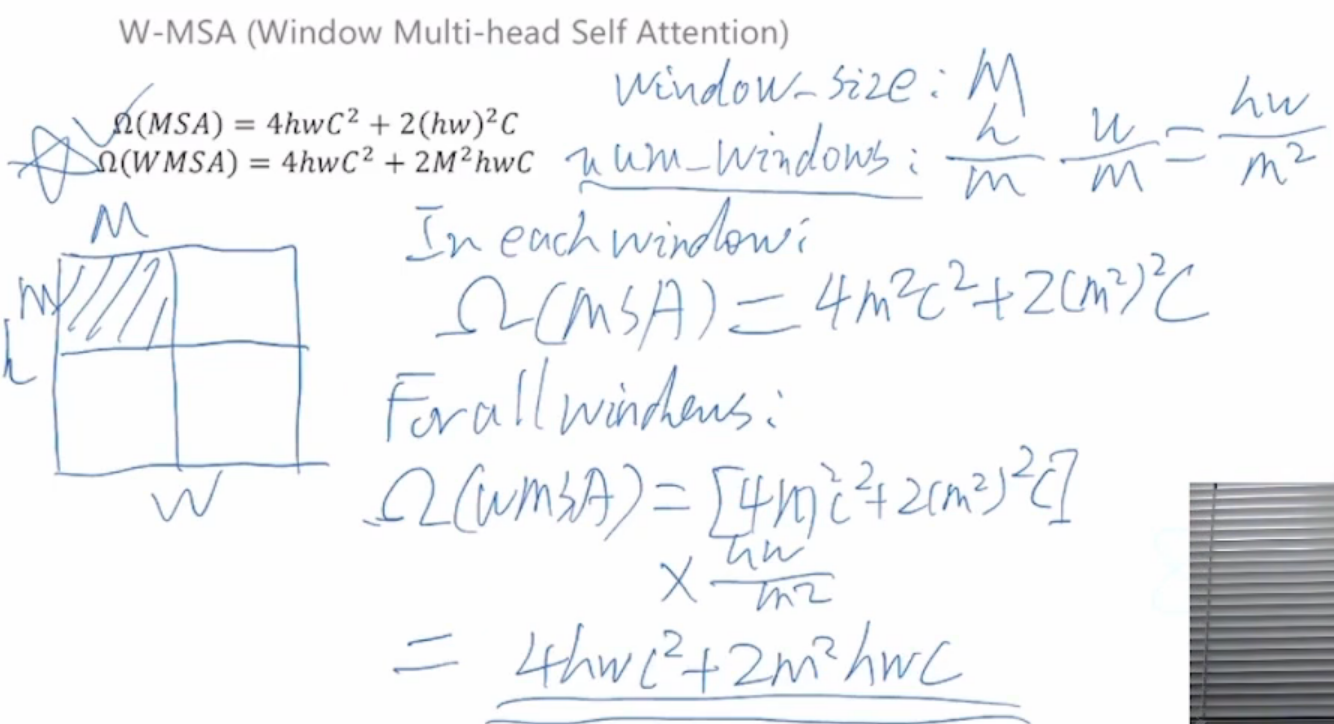 W-MSA (Window Multi-head Self Attention)
Ω(MSA) = 4hwC² + 2(hw)²C
Ω(WMSA) = 4hwC² + 2M²hwC
window_size: M
num_windows: h/m w/m = hw/m²
M
M
h
W
In each window:
Ω(MSA) = 4m²C² + 2(m²)²C
For all windows:
Ω(WMSA) = [4m²C² + 2(m²)²C]
× hw/m²
= 4hwC² + 2m²hwC